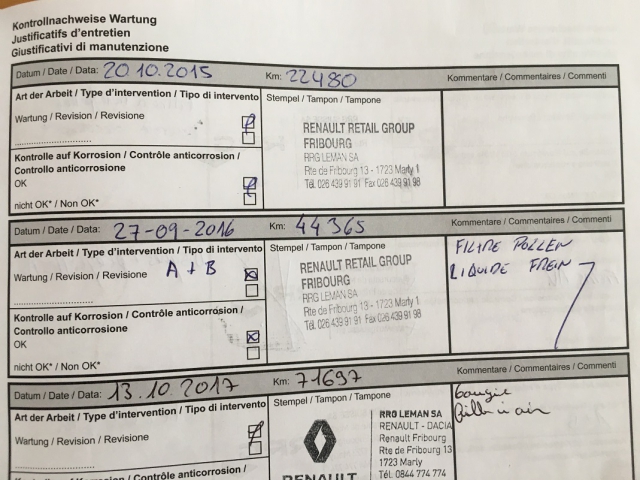 Kontrollnachweise Wartung
Justificatifs d'entretien
Giustificativi di manutenzione
Datum / Date / Data: 20.10.2015 Km: 22480 Kommentare / Commentaires / Commenti
Art der Arbeit / Type d'intervention / Tipo di intervento Stempel / Tampon / Tampone
Wartung / Revision / Revisione
RENAULT RETAIL GROUP
FRIBOURG
RRG LEMAN SA
Rte de Fribourg 13 - 1723 Marly 1
Tél. 026 439 91 91 Fax 026 439 91 98
Kontrolle auf Korrosion / Contrôle anticorrosion /
Controllo anticorrosione
OK
nicht OK* / Non OK*
Datum / Date / Data: 27-09-2016 Km: 44365 Kommentare / Commentaires / Commenti
Art der Arbeit / Type d'intervention / Tipo di intervento Stempel / Tampon / Tampone
Wartung / Revision / Revisione A + B
RENAULT RETAIL GROUP
FRIBOURG
RRG LEMAN SA
Rte de Fribourg 13 - 1723 Marly 1
Tél. 026 439 91 91 Fax 026 439 91 98
FILTRE POLLEN
LIQUIDE FREIN
Kontrolle auf Korrosion / Contrôle anticorrosion /
Controllo anticorrosione
OK
nicht OK* / Non OK*
Datum / Date / Data: 13.10.2017 Km: 71697 Kommentare / Commentaires / Commenti
Art der Arbeit / Type d'intervention / Tipo di intervento Stempel / Tampon / Tampone
Wartung / Revision / Revisione
RENAULT
RRG LEMAN SA
RENAULT - DACIA
Renault Fribourg
Rte de Fribourg 13
1723 Marly
Tél. 0844 774 774
bougie
air
Kontrolle auf Korrosion / Contrôle anticorrosion /